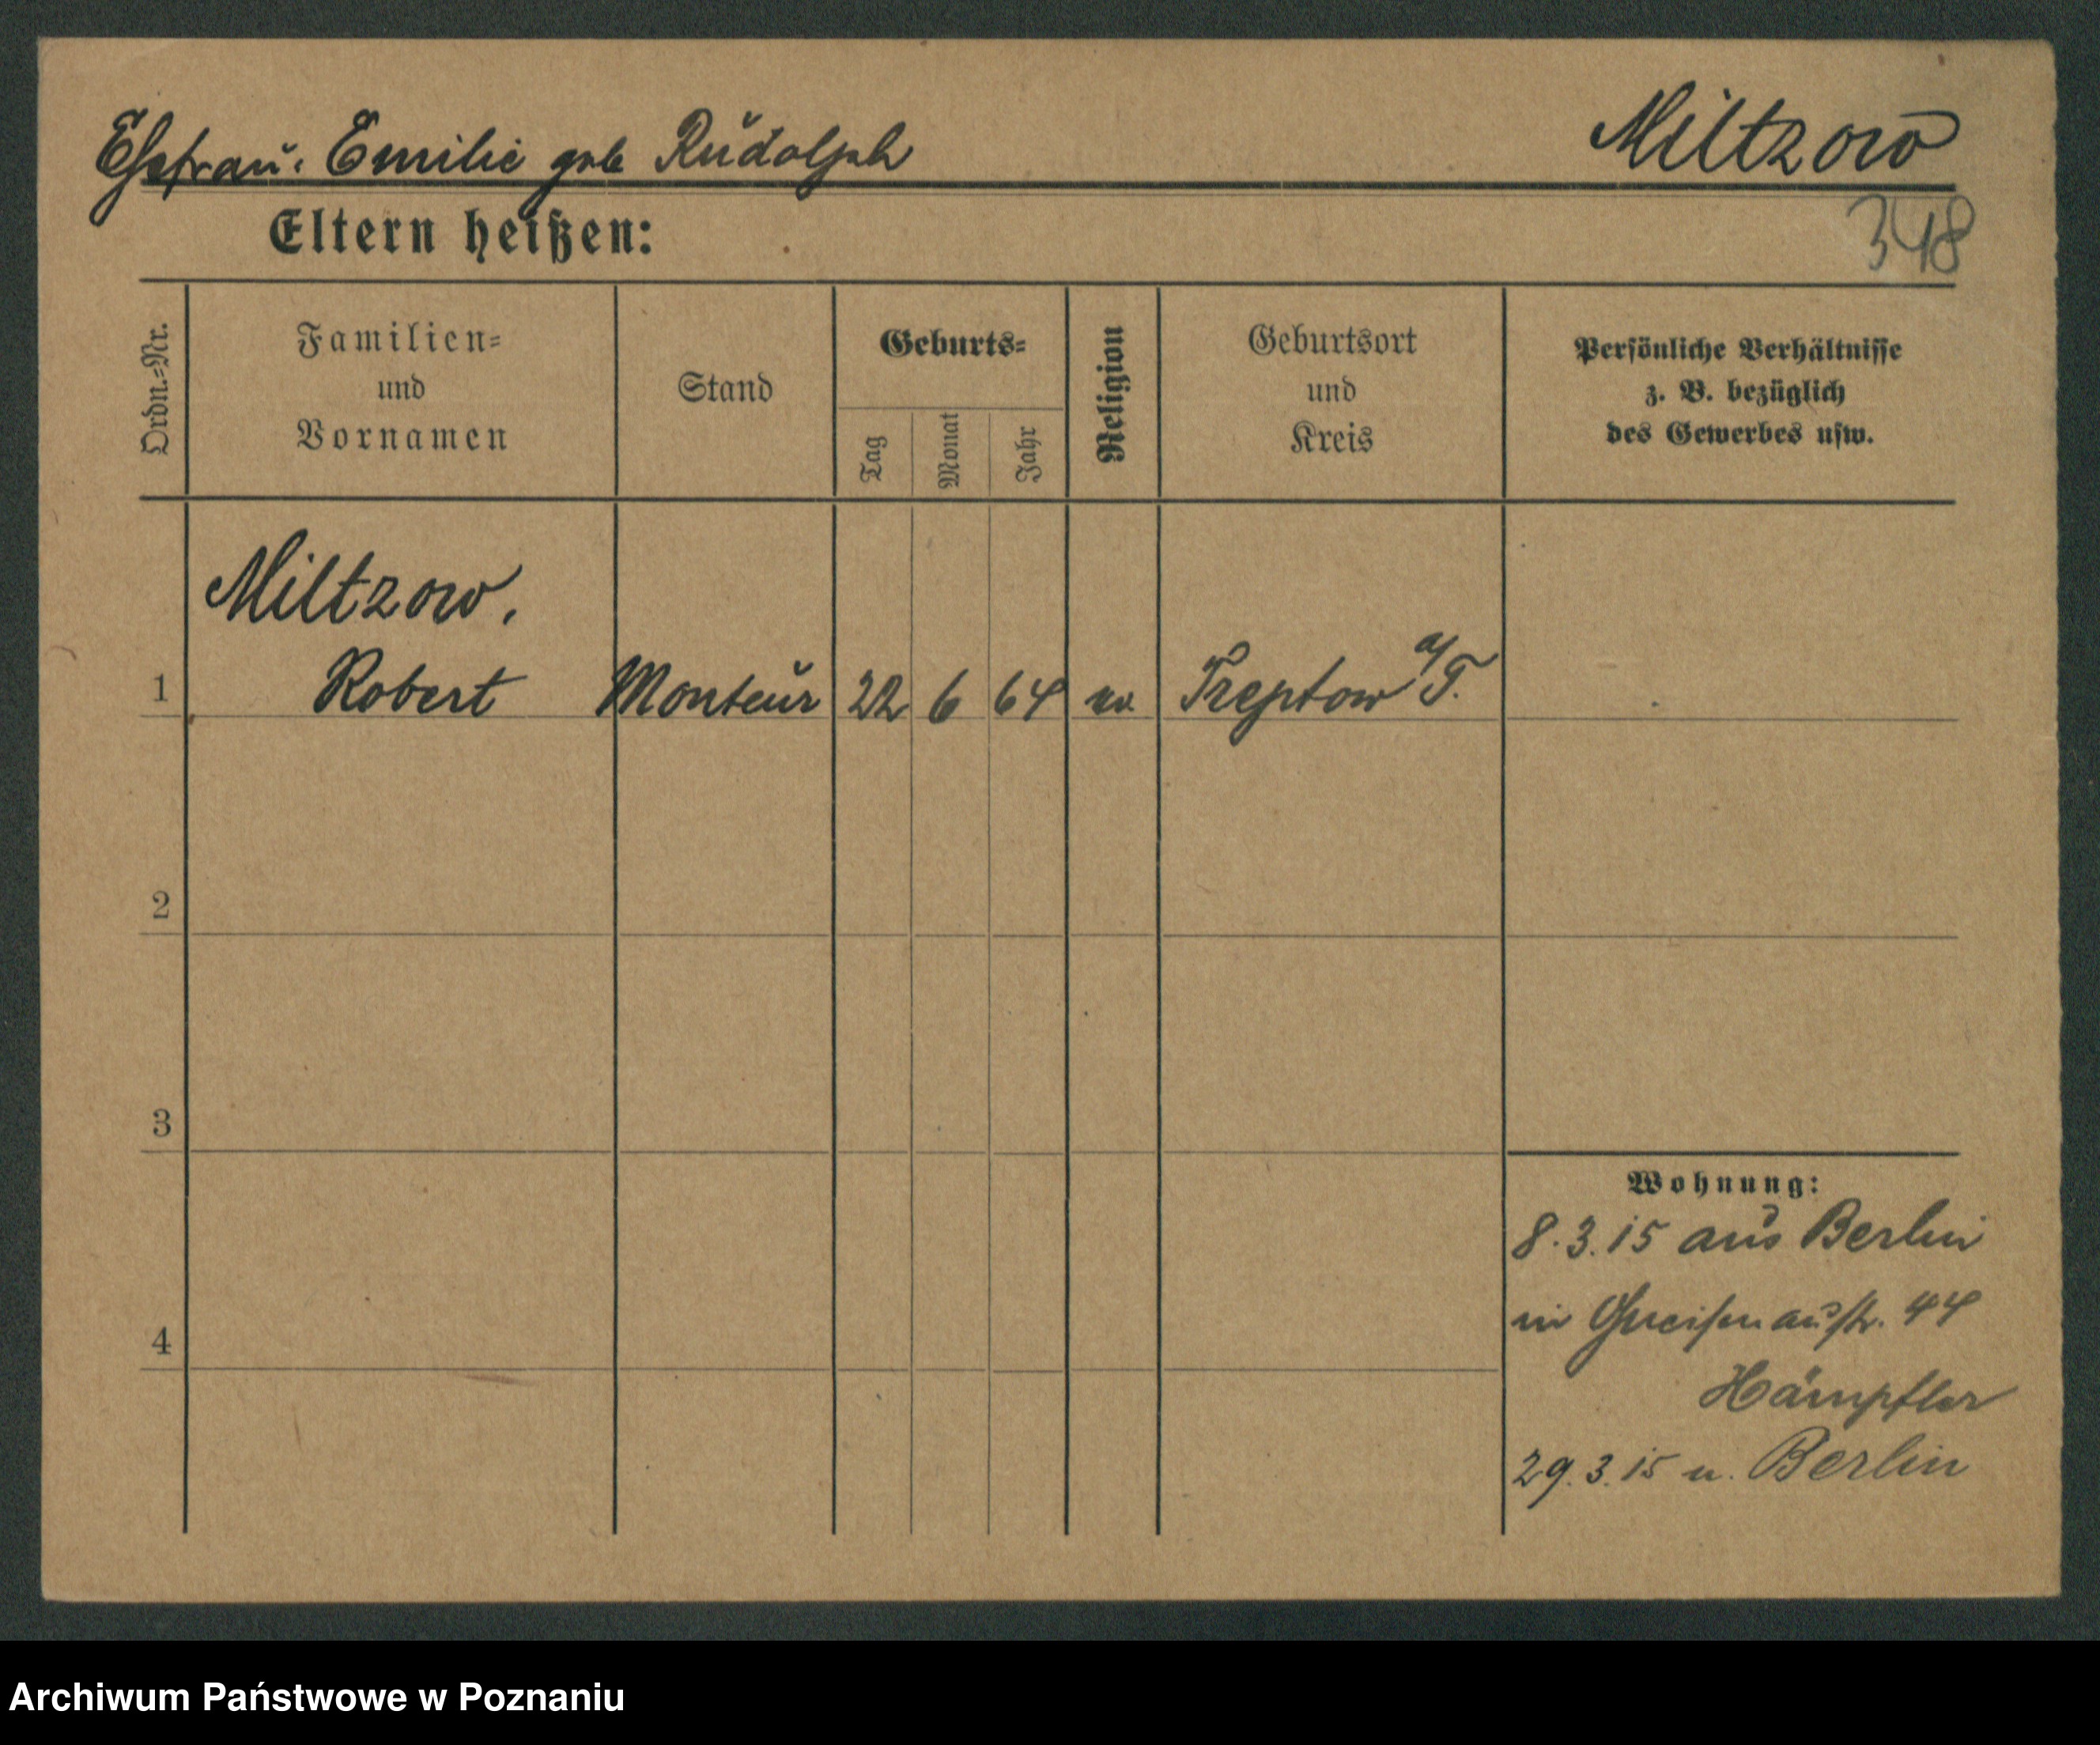 Ehefrau: Emilie geb Rudolph
Miltzow
348
Eltern heißen:
Ordn.=Nr.
Familien=
und
Vornamen
Stand
Geburts=
Tag
Monat
Jahr
Religion
Geburtsort
und
Kreis
Persönliche Verhältnisse
z. B. bezüglich
des Gewerbes usw.
Miltzow.
1 Robert Monteur 22 6 64 ev. Treptow a/T.
2
3
4
Wohnung:
8.3.15 aus Berlin
in Gneisenaustr. 44
Hämpfler
29.3.15 n. Berlin
Archiwum Państwowe w Poznaniu